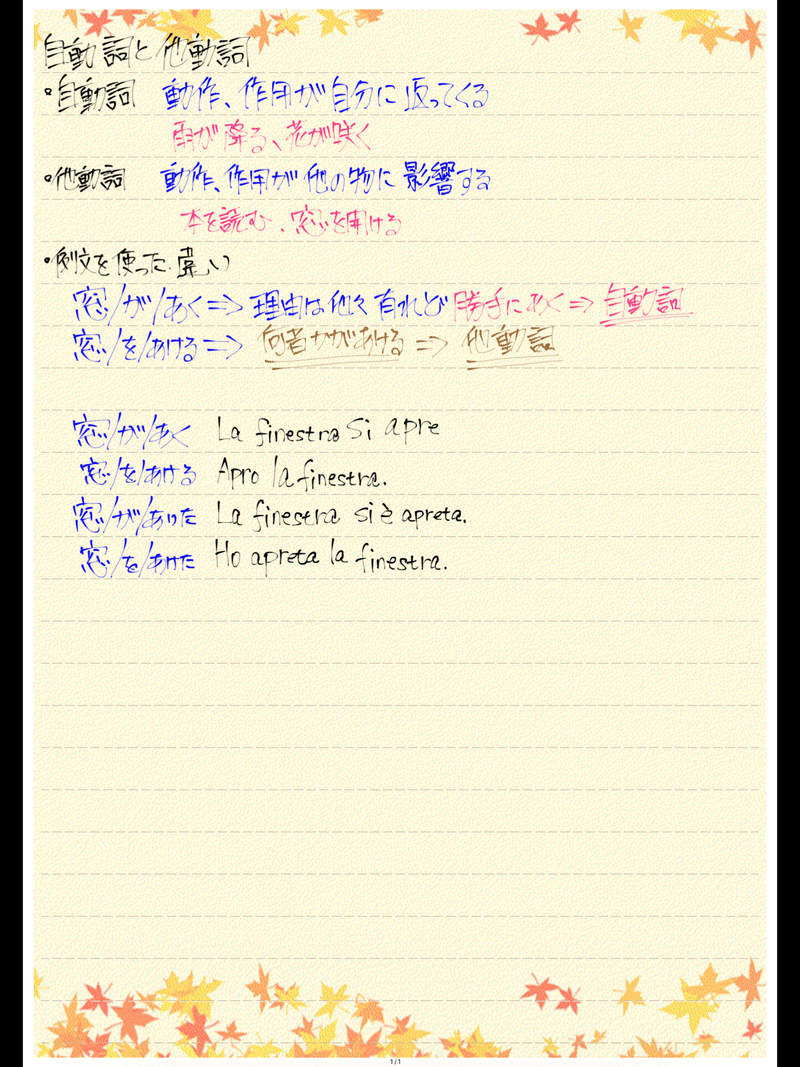 自動詞と他動詞
•自動詞 動作、作用が自分に返ってくる
雨が降る、花が咲く
•他動詞 動作、作用が他の物に影響する
本を読む、窓を開ける
•例文を使った違い
窓/が/あく⇒理由は他々有れど勝手にあく⇒自動詞
窓/を/あける⇒何者かがあける⇒他動詞
窓/が/あく La finestra si apre
窓/を/あける Apro la finestra.
窓/が/あいた La finestra si è apreta.
窓/を/あけた Ho apreta la finestra.
1/1